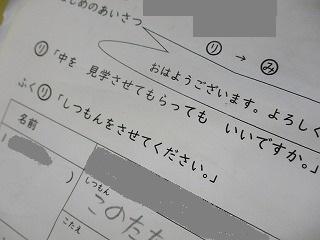 じめのあいさつ
り → み
おはようございます。よろしく
り「中を 見学させてもらっても いいですか。」
ふくり「しつもんをさせてください。」
名前
(
)
しつもん
このたた
こたえ